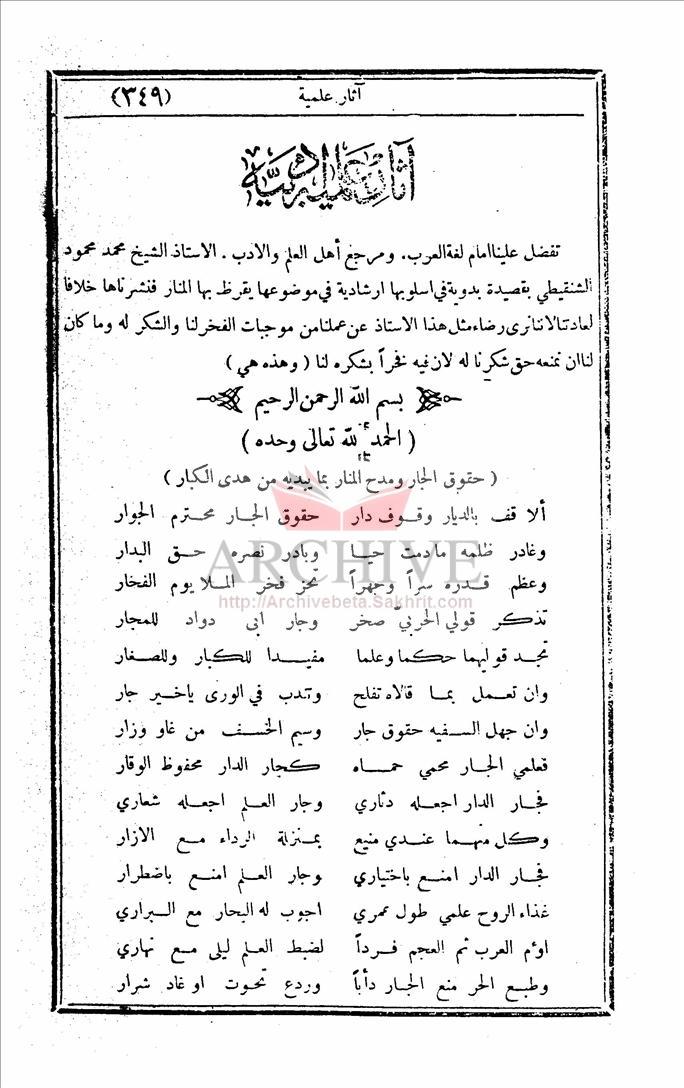 آثار علمية
(٣٤٩)
آثار علمية ادبية
تفضل علينا امام لغة العرب. ومرجع أهل العلم والادب. الاستاذ الشيخ محمد محمود
الشنقيطي بقصيدة بدوية في اسلوبها ارشادية في موضوعها يقرظ بها المنار فنشرناها خلافا
لعادتنا لاننا نرى رضاء مثل هذا الاستاذ عن عملنا من موجبات الفخر لنا والشكر له وما كان
لنا ان نمنعه حق شكرنا له لان فيه فخراً بشكره لنا (وهذه هي)
بسم الله الرحمن الرحيم
(الحمد لله تعالى وحده)
(حقوق الجار ومدح المنار بما يبديه من هدى الكبار)
ألا قف بالديار وقوف دار حقوق الجار محترم الجوار
وغادر ظلمه مادمت حيا وبادر نصره حق البدار
وعظم قدره سراً وجهراً تحز فخر الملا يوم الفخار
تذكر قولي الحربيّ صخر وجار أبي دواد للمجار
تجد قوليهما حكما وعلما مفيدا للكبار وللصغار
وان تعمل بما قالاه تفلح وتدب في الورى ياخير جار
وان جهل السفيه حقوق جار وسيم الخسف من غاو وزار
فعلمي الجار محمي حماه كجار الدار محفوظ الوقار
فجار الدار اجعله دثاري وجار العلم اجعله شعاري
وكل منهما عندي منيع بمنزلة الرداء مع الازار
فجار الدار امنع باختياري وجار العلم امنع باضطرار
غذاء الروح علمي طول عمري اجوب له البحار مع البراري
اوم العرب ثم العجم فرداً لضبط العلم ليلى مع نهاري
وطبع الحر منع الجار دأباً وردع تحوت اوغاد شرار
ARCHIVE
http://Archivebeta.Sakhrit.com